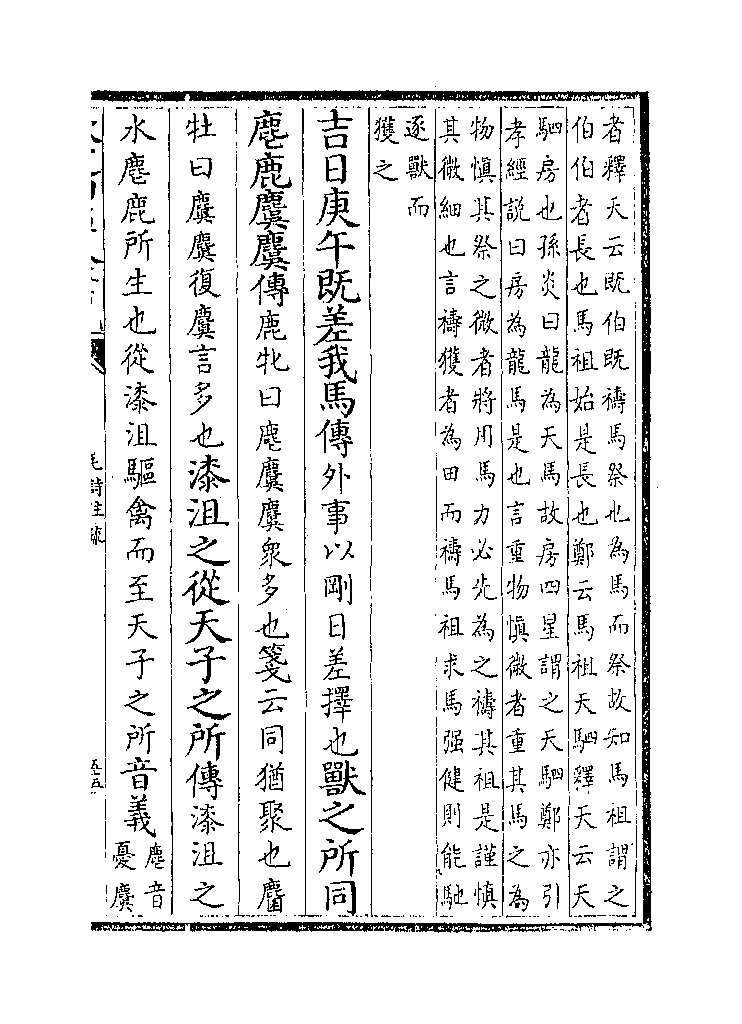 者釋天云既伯既禱馬祭也為馬而祭故知馬祖謂之
伯伯者長也馬祖始是長也鄭云馬祖天駟釋天云天
駟房也孫炎曰龍為天馬故房四星謂之天駟鄭亦引
孝經說曰房為龍馬是也言重物慎微者重其馬之為
物慎其祭之微者將用馬力必先為之禱其祖是謹慎
其微細也言禱獲者為田而禱馬祖求馬强健則能馳
逐獸而
獲之
吉日庚午既差我馬傳外事以剛日差擇也獸之所同
麀鹿麌麌傳鹿牝曰麀麌麌衆多也箋云同猶聚也麕
牡曰麌麌復麌言多也漆沮之從天子之所傳漆沮之
水麀鹿所生也從漆沮驅禽而至天子之所音義
麀音
憂麌
毛詩注疏
五五